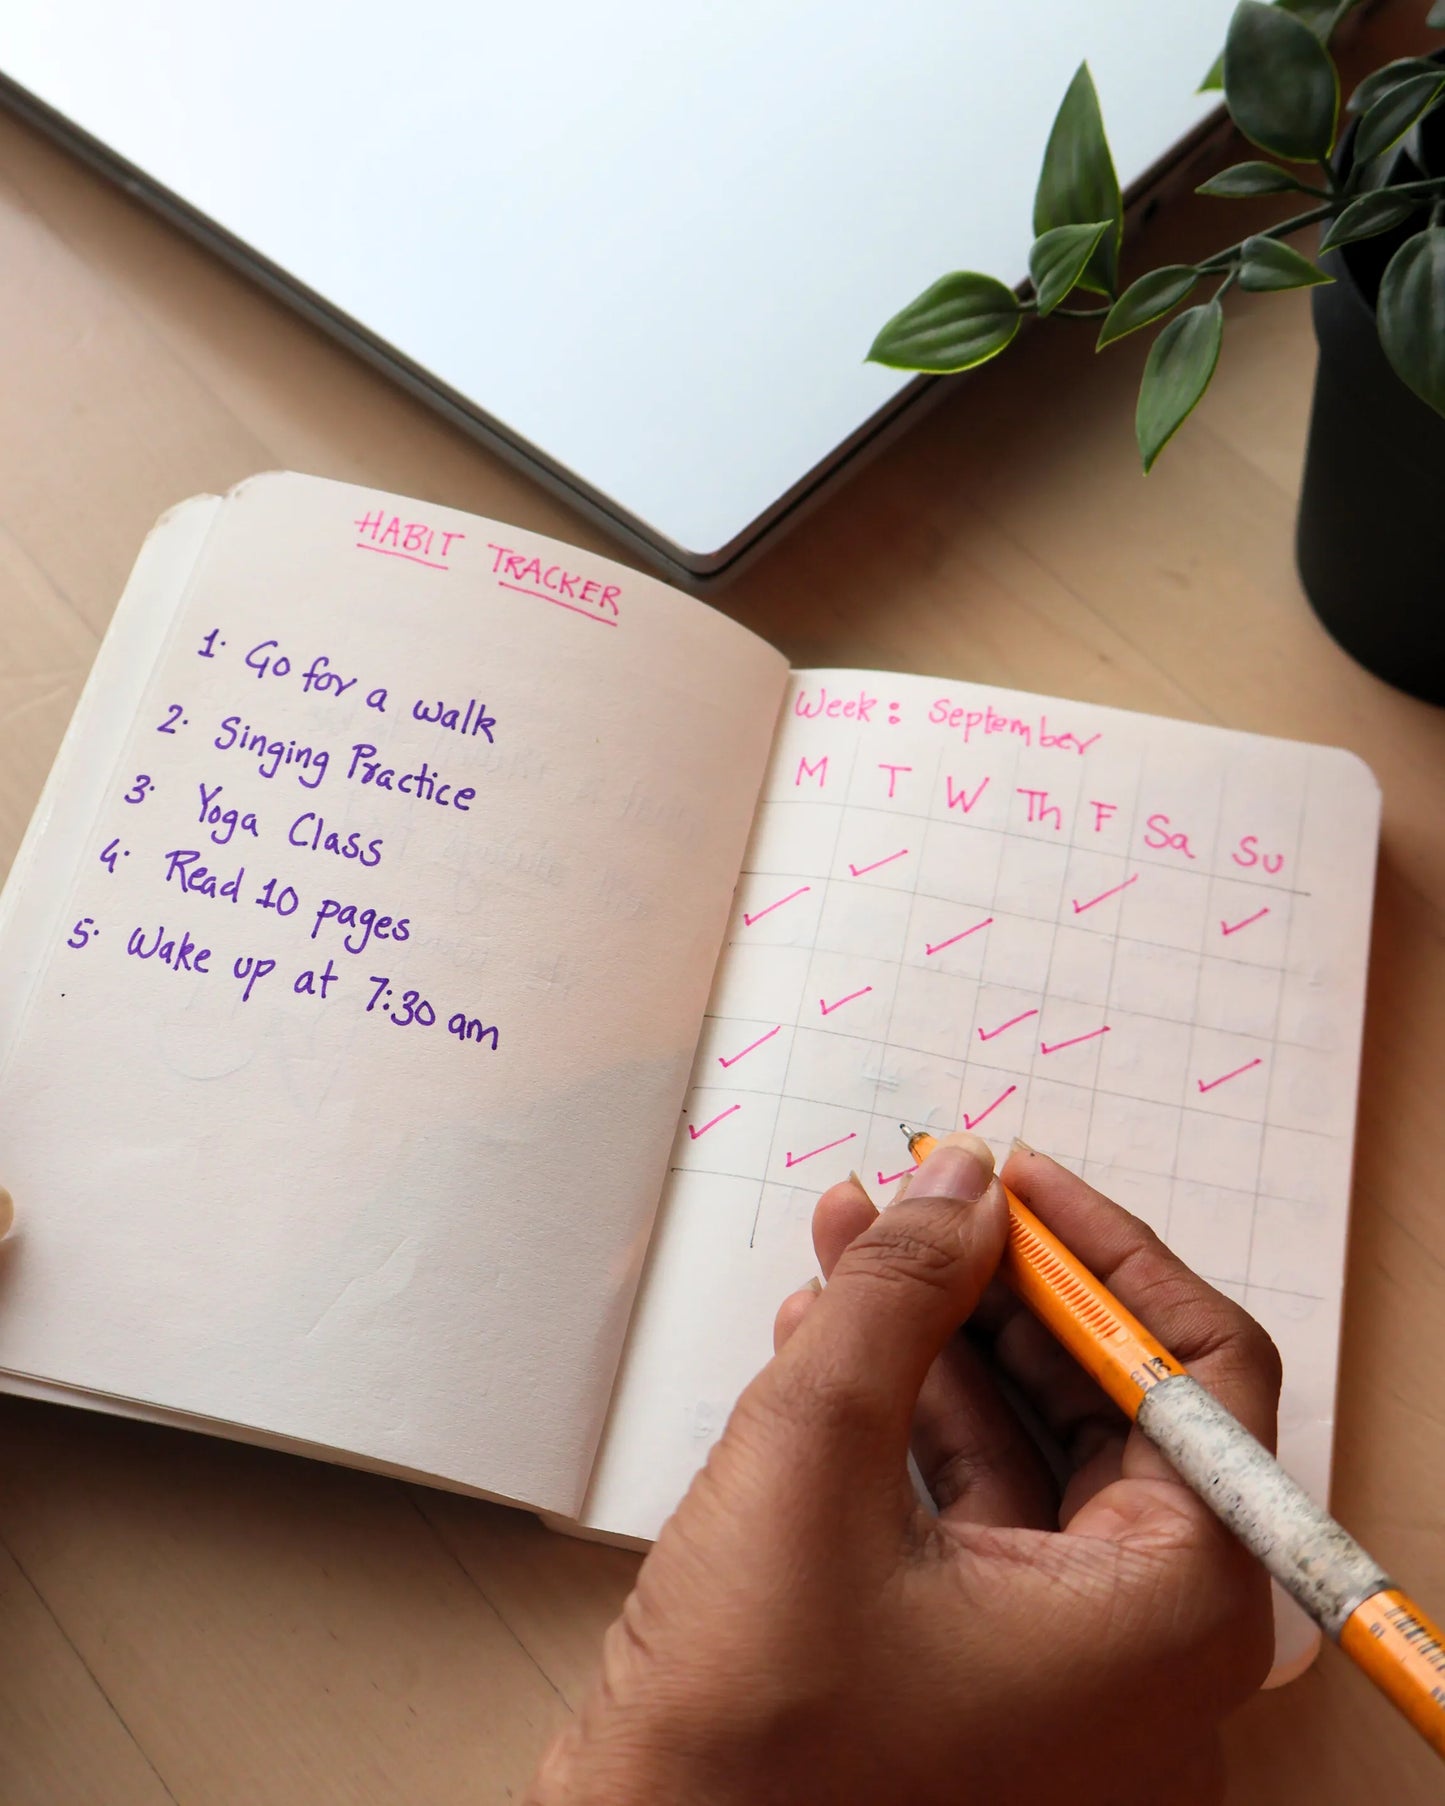 HABIT TRACKER
1. Go for a walk
2. Singing Practice
3. Yoga Class
4. Read 10 pages
5. Wake up at 7:30 am
Week: September
M T W Th F Sa Su